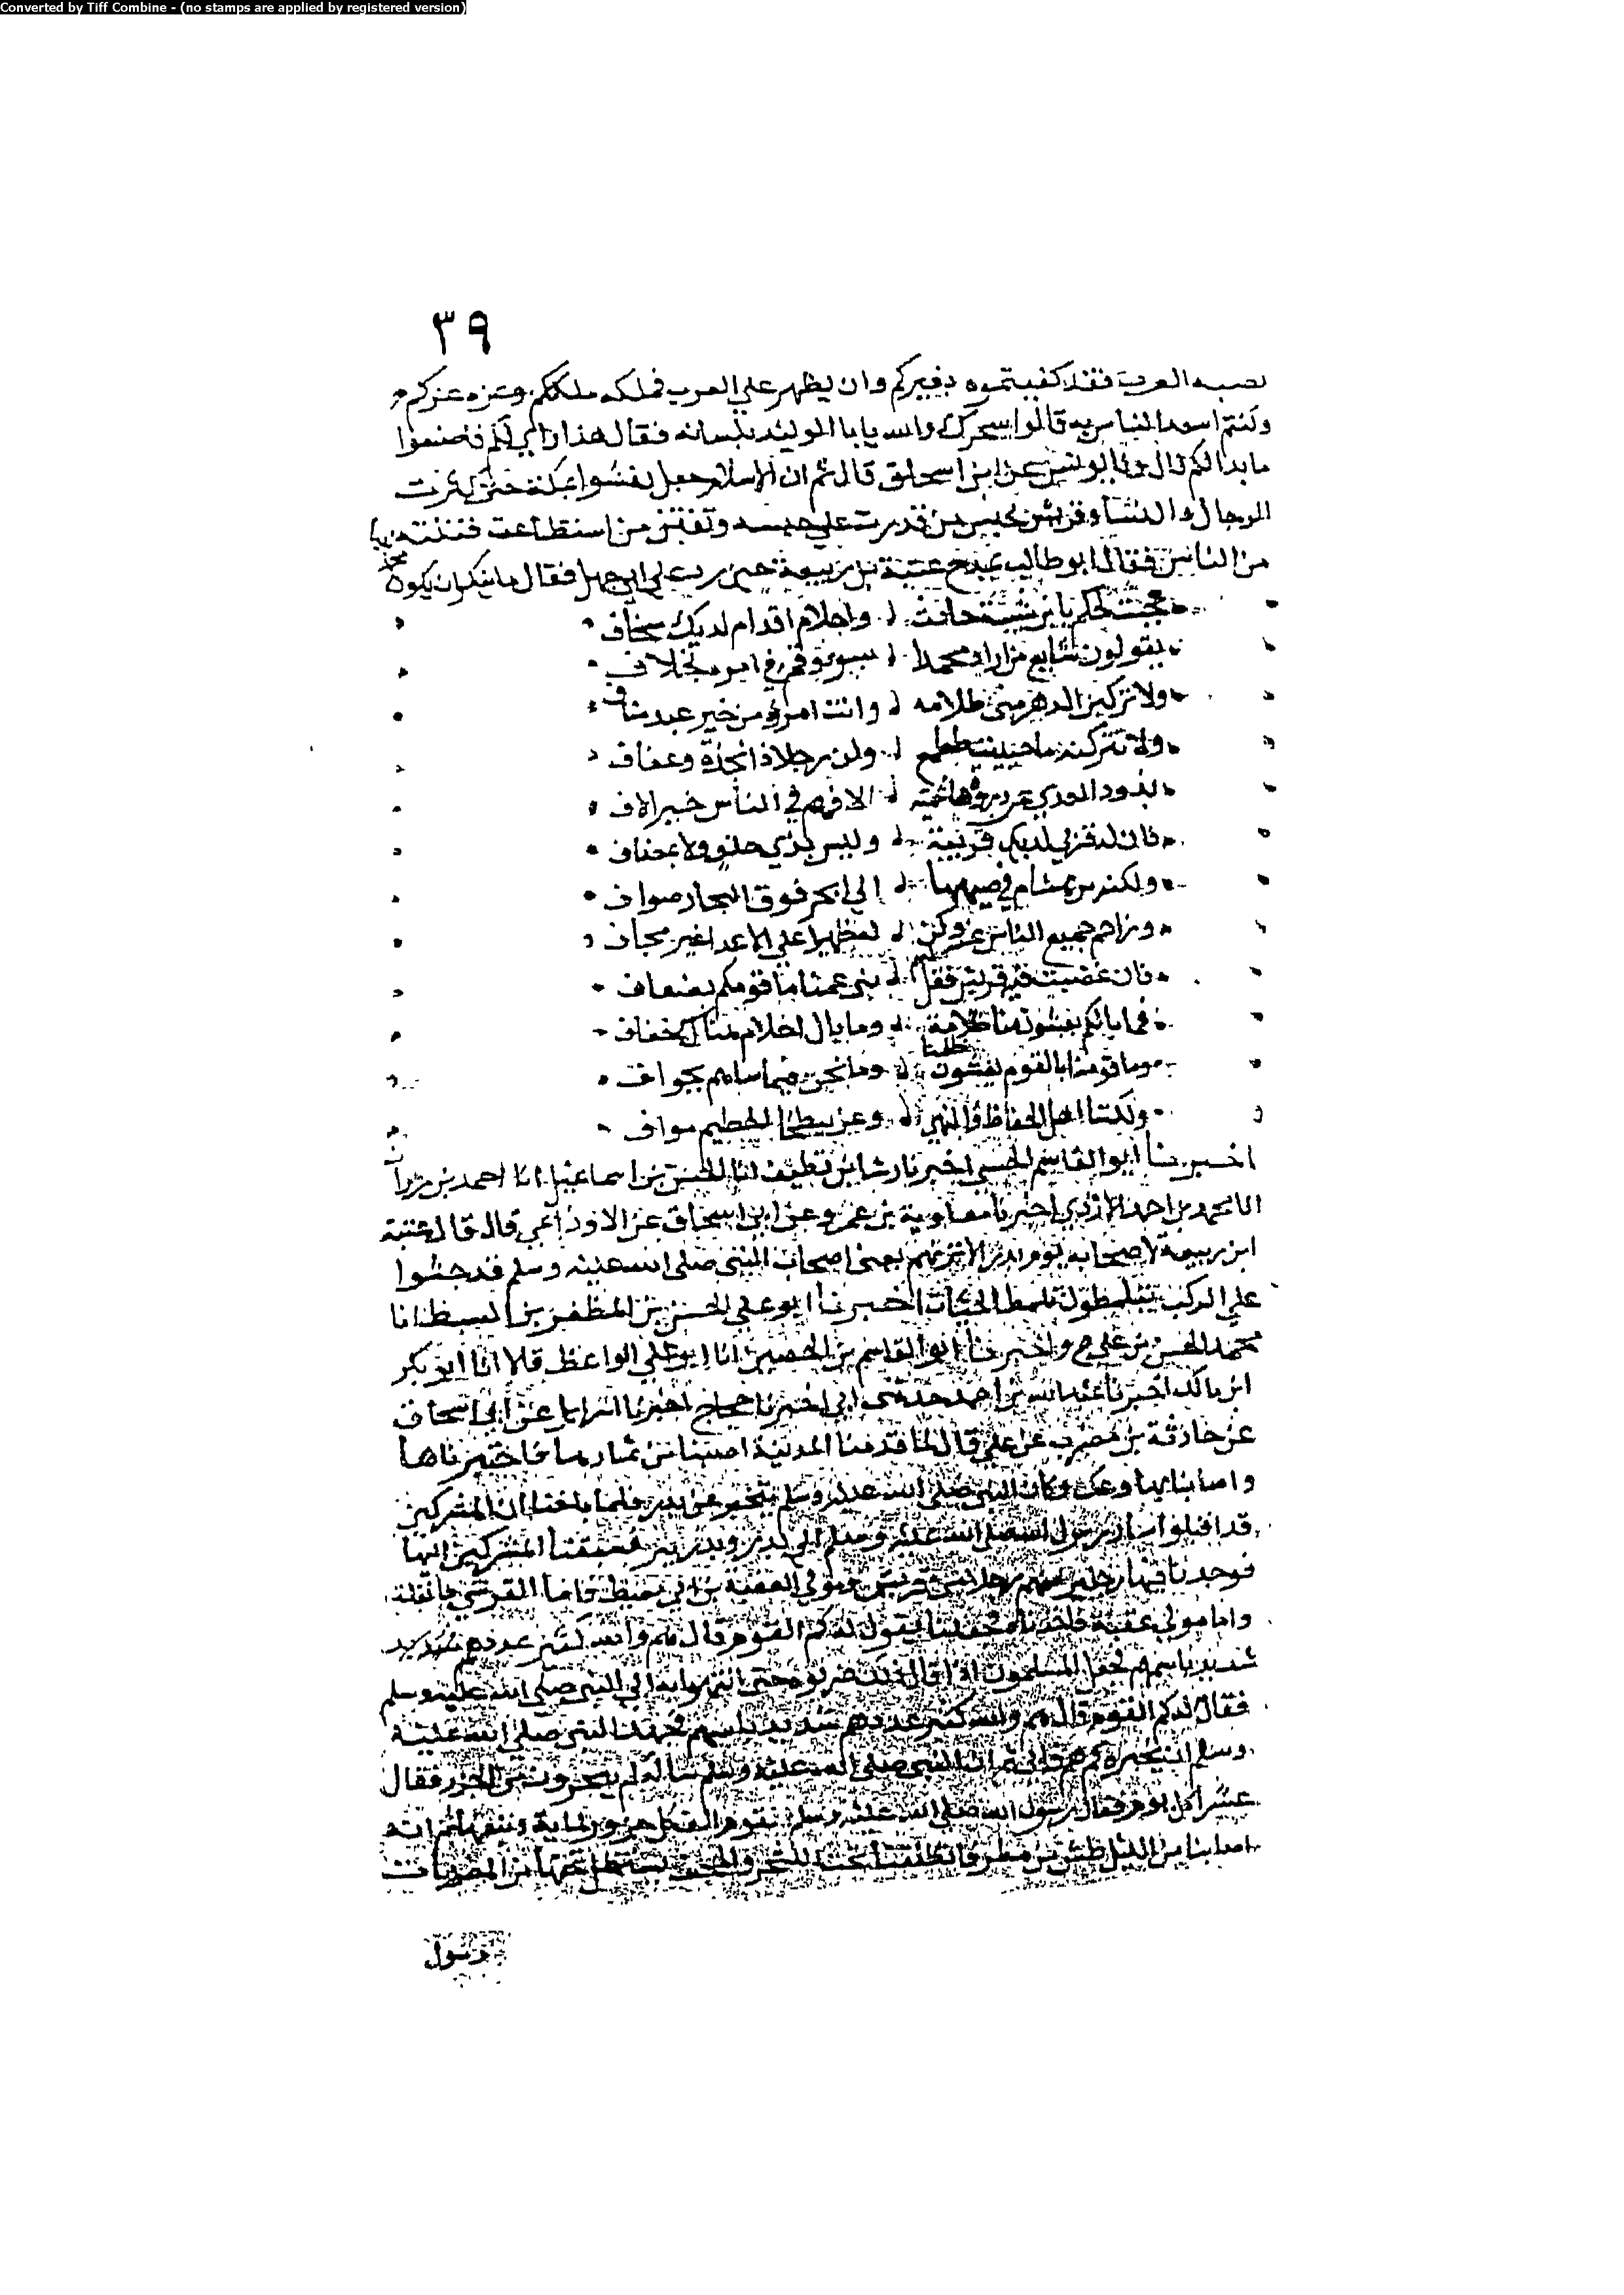 Converted by Tiff Combine - (no stamps are applied by registered version)
٣٩
تصبه العرب فقد كفيتموه بغيركم وان يظهر علي العرب فملكه ملككم وعزه عزكم و
وكنتم اسعد الناس به قالوا سحرك والله يابا الوليد بلسانه فقال هذا رايي لكم فاصنعوا
ما بدا لكم قال ونا يونس عن ابن اسحاق قال ثم ان الاسلام جعل يفشوا بمكة حتى كثرت
الرجال والنسا وقريش تحبس من قدرت على حبسه وتفتن من استطاعت فتنته
من الناس فقال ابو طالب يمدح عتبة بن ربيعة حين رد على ابي جهل فقال ما ينكر ان يكون محمد
عجبت لحكم يا بن شيبة حادث واحلام اقدام لديك سخاف
يقولون شايع من اراد محمدا بسوء وقم في امره بخلاف
ولا تركبن الدهر مني ظلامه وانت امرؤ من خير عبد مناف
ولا تتركنه ما حييت لمطمع وكن رجلا ذا نجدة وعفاف
يذود العدي عن ذروة هاشمية الافهم في الناس خير الاف
فان له قربي لديك قريبة وليس بذي حلف ولا بمضاف
ولكنه من هاشم في صميمها الي ابحر فوق البحار صواف
وزاحم جميع الناس عنه وكن له ظهيرا علي الاعدا غير مجاف
فان غضبت فيه قريش فقل لهم بني عمنا ما قومكم بضعاف
فما بالكم تغشون منا ظلامة وما بال احلام هناك خفاف
وما قومنا بالقوم يغشون ظلمنا وما نحن فيما ساهم بخواف
ولكننا اهل الحفاظ والنهي وعز ببطحا الحطيم مواف
اخبرنا ابو القاسم الحسيني اخبرنا رشا بن نظيف انا الحسن بن اسماعيل انا احمد بن مروان
انا محمد بن احمد الازدي اخبرنا معاوية بن عمرو عن ابي اسحاق عن الاوزاعي قال قال عتبة
ابن ربيعة لاصحابه يوم بدر الا ترونهم يعني اصحاب النبي صلى الله عليه وسلم قد جثوا
علي الركب يتلمظون تلمظ الحيات اخبرنا ابو علي الحسن بن المظفر بن السبط انا ابا
محمد الحسن بن علي ح واخبرنا ابو القاسم بن الحصين انا ابو علي الواعظ قالا انا ابو بكر
ابن مالك اخبرنا عبد الله بن احمد حدثني ابي اخبرنا حجاج اخبرنا اسرايل عن ابي اسحاق
عن حارثة بن مضرب عن علي قال لما قدمنا المدينة اصبنا من ثمارها فاجتويناها
واصابنا بها وعك وكان النبي صلى الله عليه وسلم يتخبر عن بدر فلما بلغنا ان المشركين
قد اقبلوا سار رسول الله صلى الله عليه وسلم الي بدر وبدر بير فسبقنا المشركين اليها
فوجدنا فيها رجلين منهم رجلا من قريش ومولي لعقبة بن ابي معيط فاما القرشي فانفلت
واما مولي عقبة فاخذناه فجعلنا نقول له كم القوم قال هم والله كثير عددهم شديد
شديد باسهم فجعل المسلمون اذا قال ذلك ضربوه حتى انتهوا به الي النبي صلى الله عليه وسلم
فقال له كم القوم قال هم والله كثير عددهم شديد باسهم فجهد النبي صلى الله عليه
وسلم ان يخبره كم هم فابى ثم ان النبي صلى الله عليه وسلم ساله كم ينحرون من الجزر فقال
عشرا كل يوم فقال رسول الله صلى الله عليه وسلم القوم الف كل جزور لماية وتبعها ثم انه
اصابنا من الليل طش من مطر فانطلقنا تحت الشجر والحجف نستظل تحتها من المطر وبات
رسول